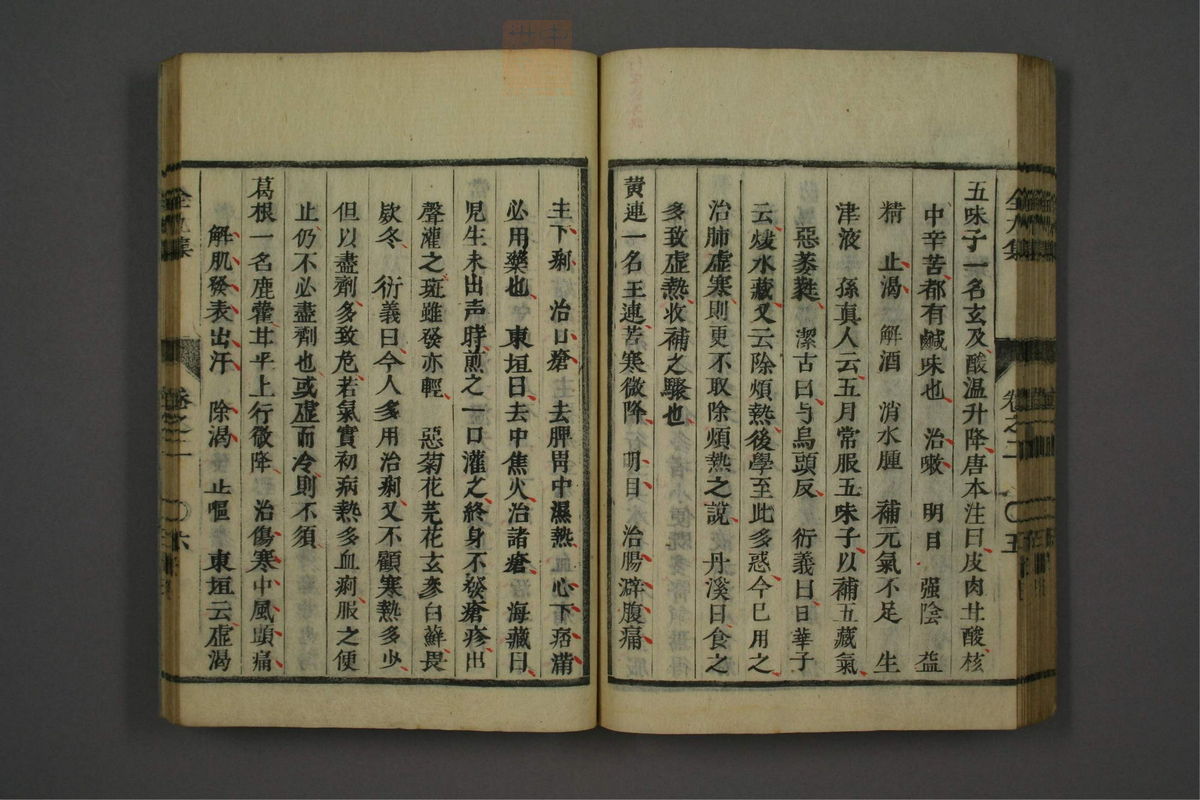 五味子一名玄及酸温升降唐本注曰皮肉甘酸核
中辛苦都有鹹味也 治嗽 明目 强陰 益
精 止渴 解酒 消水腫 補元氣不足 生
津液 孫真人云五月常服五味子以補五藏氣
惡萎蕤 潔古曰与烏頭反 衍義曰日華子
云煖水藏又云除煩熱後學至此多惑今已用之
治肺虚寒則更不取除煩熱之說 丹溪曰食之
多致虚熱收補之驟也
黄連一名王連苦寒微降 明目 治腸澼腹痛
卷之二 〇五
主下痢 治口瘡 去脾胃中濕熱 心下痞滿
必用藥也 東垣曰去中焦火治諸瘡 海藏曰
児生未出声時煎之一口灌之終身不發瘡疹出
聲灌之斑雖發亦輕 惡菊花芫花玄參白鮮畏
欵冬 衍義曰今人多用治痢又不顧寒熱多少
但以盡劑多致危若氣實初病熱多血痢服之便
止仍不必盡劑也或虚而冷則不須
葛根一名鹿藿甘平上行微降 治傷寒中風頭痛
解肌發表出汗 除渴 止嘔 東垣云虚渴
全九集 卷之二 〇六